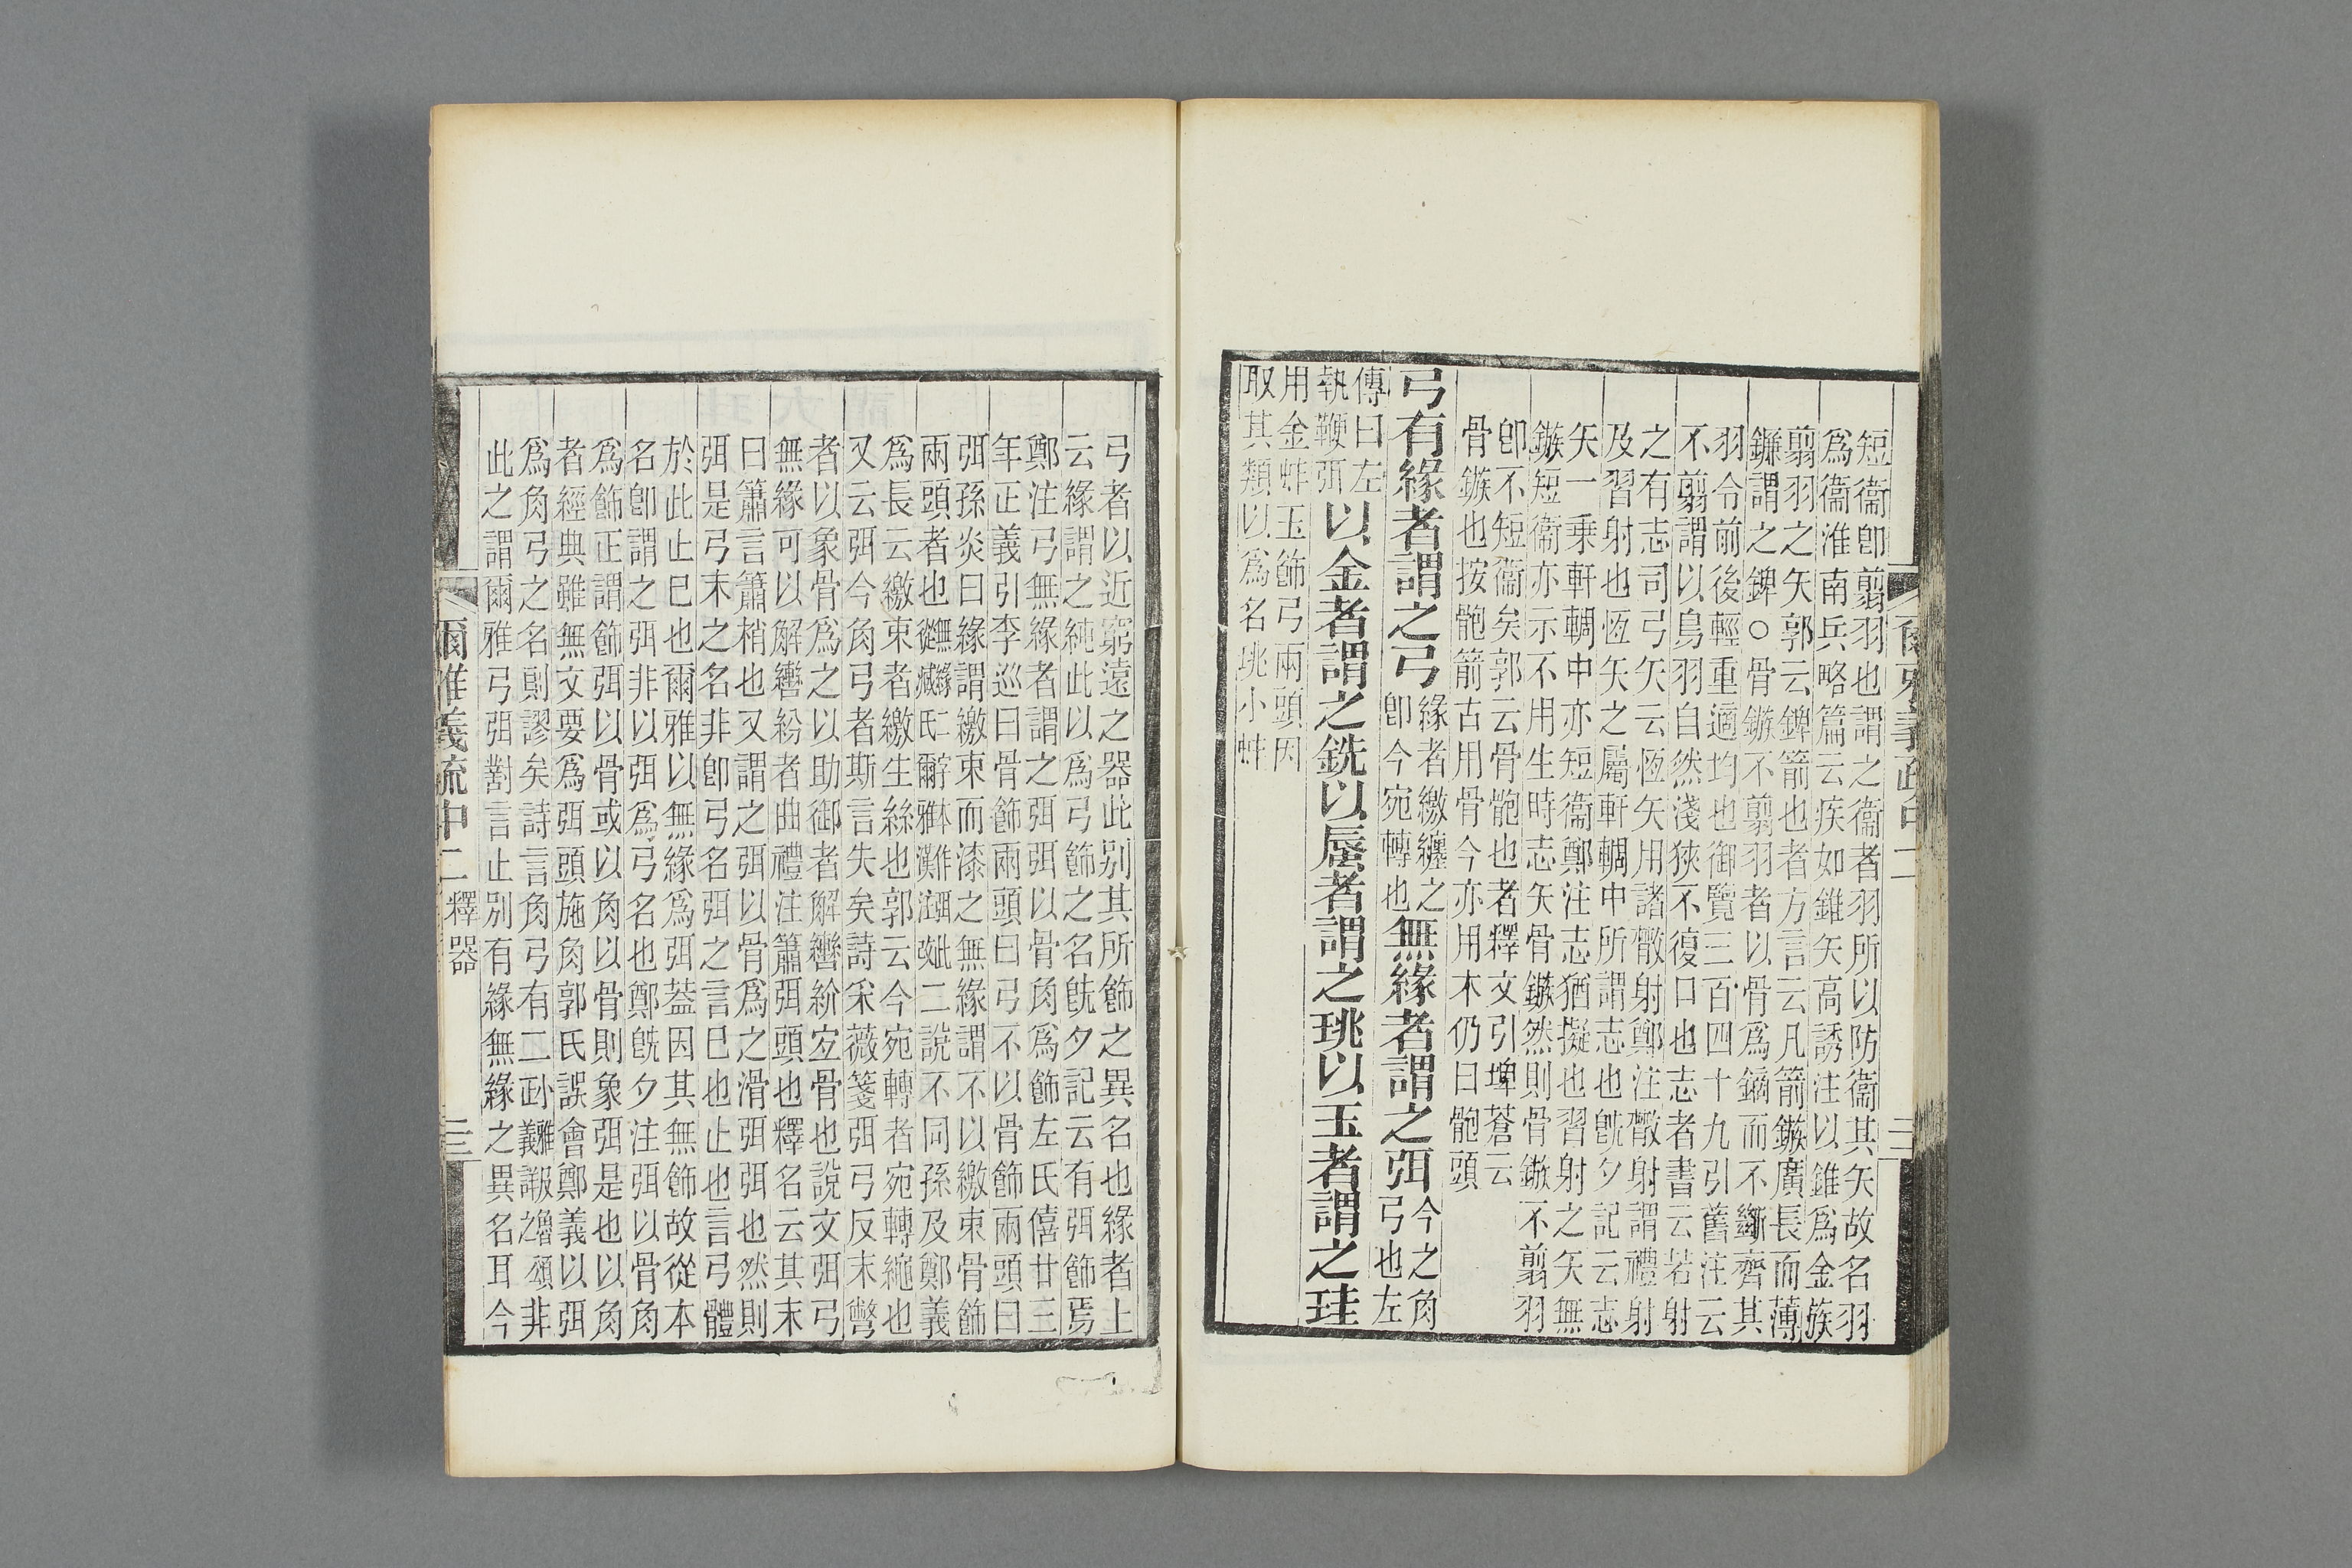 短衞卽翦羽也謂之衞者羽所以防衞其矢故名羽
爲衞淮南兵略篇云疾如錐矢高誘注以錐爲金族
翦羽之矢郭云錍箭也者方言云凡箭鏃廣長而薄
鐮謂之錍○骨鏃不翦羽者以骨爲鏑而不斷齊其
羽令前後輕重適均也御覽三百四十九引舊注云
不翦謂以鳥羽自然淺狹不復口也志者書云若射
之有志司弓矢云恆矢用諸散射鄭注散射謂禮射
及習射也恆矢之屬軒輖中所謂志也旣夕記云志
矢一乗軒輖中亦短衞鄭注志猶擬也習射之矢無
鏃短衞亦示不用生時志矢骨鏃然則骨鏃不翦羽
卽不短衞矣郭云骨骲也者釋文引埤蒼云
骨鏃也按骲箭古用骨今亦用木仍曰骲頭
弓有緣者謂之弓
緣者繳纏之
卽今宛轉也
無緣者謂之弭
今之角
弓也左
傳曰左
執鞭弭
以金者謂之銑以蜃者謂之珧以玉者謂之珪
用金蚌玉飾弓兩頭因
取其類以爲名珧小蚌
弓者以近窮遠之器此别其所飾之異名也緣者上
云緣謂之純此以爲弓飾之名旣夕記云有弭飾焉
鄭注弓無緣者謂之弭弭以骨角爲飾左氏僖廿三
年正義引李巡曰骨飾兩頭曰弓不以骨飾兩頭曰
弭孫炎曰緣謂繳束而漆之無緣謂不以繳束骨飾
兩頭者也二說不同孫及鄭義
爲長云繳束者繳生絲也郭云今宛轉者宛轉繩也
又云弭今角弓者斯言失矣詩采薇箋弭弓反末彆
者以象骨爲之以助御者解轡紒宜骨也說文弭弓
無緣可以解轡紛者曲禮注簫弭頭也釋名云其末
曰簫言簫梢也又謂之弭以骨爲之滑弭弭也然則
弭是弓末之名非卽弓名弭之言巳也止也言弓體
於此止巳也爾雅以無緣爲弭葢因其無飾故從本
名卽謂之弭非以弭爲弓名也鄭旣夕注弭以骨角
爲飾正謂飾弭以骨或以角以骨則象弭是也以角
者經典雖無文要爲弭頭施角郭氏誤會鄭義以弭
爲角弓之名則謬矣詩言角弓有二
此之謂爾雅弓弭對言止别有緣無緣之異名耳今
爾雅義疏中二釋器